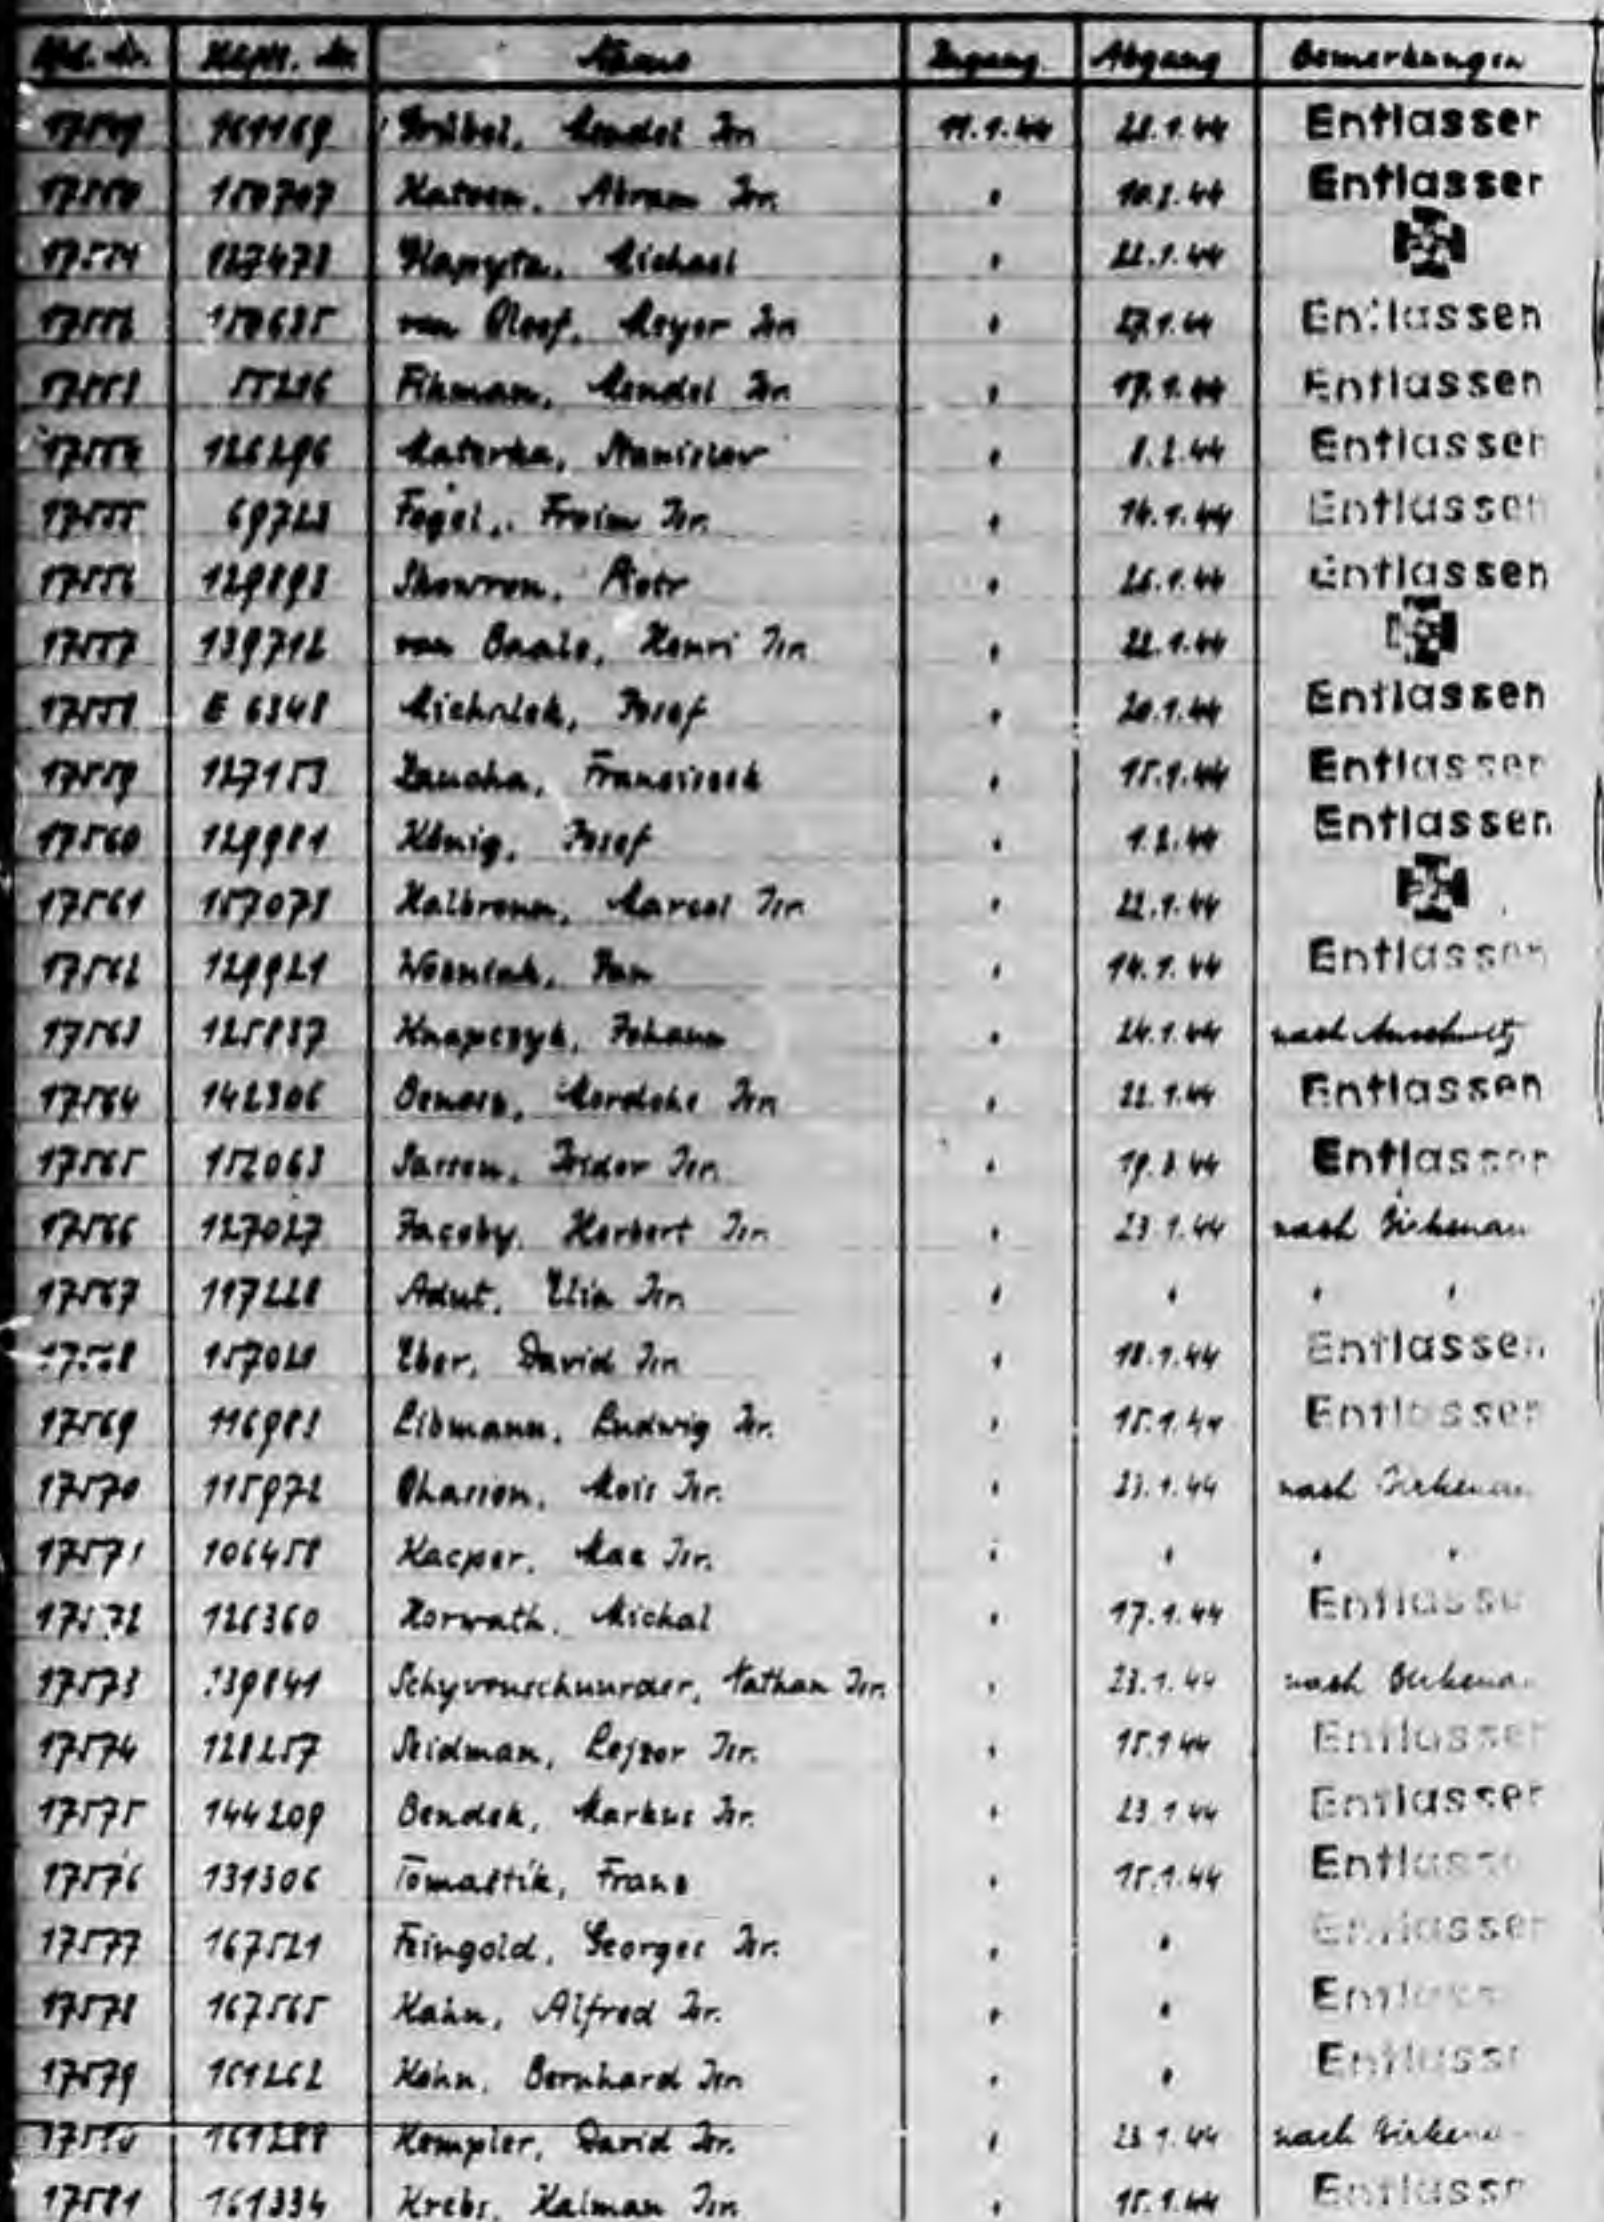 Lfd. Nr. Häftl. Nr. Name Zugang Abgang Bemerkungen
17549 161169 Grübel, Mendel Isr. 11.1.44 28.1.44 Entlassen
17550 150707 Abram Isr. " 10.2.44 Entlassen
17551 127473 Kapyta, Michael " 22.1.44
17552 150635 van Cleef, Meyer Isr. " 27.1.44 Entlassen
17553 55216 Fihman, Mendel Isr. " 17.1.44 Entlassen
17554 126296 Materka, Stanislav " 8.2.44 Entlassen
17555 69723 Fogel, Froim Isr. " 14.1.44 Entlassen
17556 129893 Skowron, Piotr " 26.1.44 Entlassen
17557 139712 van Baale, Henri Isr. " 22.1.44
17558 E 6348 Michalek, Josef " 20.1.44 Entlassen
17559 127153 Zaucha, Franciscek " 15.1.44 Entlassen
17560 129981 König, Josef " 1.2.44 Entlassen
17561 157073 Halbronn, Marcel Isr. " 22.1.44
17562 129921 Wozniak, Jan " 14.1.44 Entlassen
17563 125837 Knapczyk, Johann " 24.1.44 nach Auschwitz
17564 142306 Mordche Isr. " 22.1.44 Entlassen
17565 152063 Isidor Isr. " 19.2.44 Entlassen
17566 127027 Jacoby, Herbert Isr. " 23.1.44 nach Birkenau
17567 117228 Adut, Elia Isr. " " " "
17568 157028 Eber, David Isr. " 18.1.44 Entlassen
17569 116983 Libmann, Ludwig Isr. " 15.1.44 Entlassen
17570 115972 Chasson, Mois Isr. " 23.1.44 nach Birkenau
17571 106458 Kacper, Max Isr. " " " "
17572 126360 Horwath, Michal " 17.1.44 Entlassen
17573 139841 Schyvenschuurder, Nathan Isr. " 23.1.44 nach Birkenau
17574 128257 Seidman, Lejzor Isr. " 15.1.44 Entlassen
17575 144209 Bendek, Markus Isr. " 23.1.44 Entlassen
17576 131306 Tomastik, Franz " 15.1.44 Entlassen
17577 167521 Feingold, Georges Isr. " " Entlassen
17578 167565 Kahn, Alfred Isr. " " Entlassen
17579 161262 Kohn, Bernhard Isr. " " Entlassen
17580 161288 Kempler, David Isr. " 23.1.44 nach Birkenau
17581 161334 Krebs, Kalman Isr. " 15.1.44 Entlassen